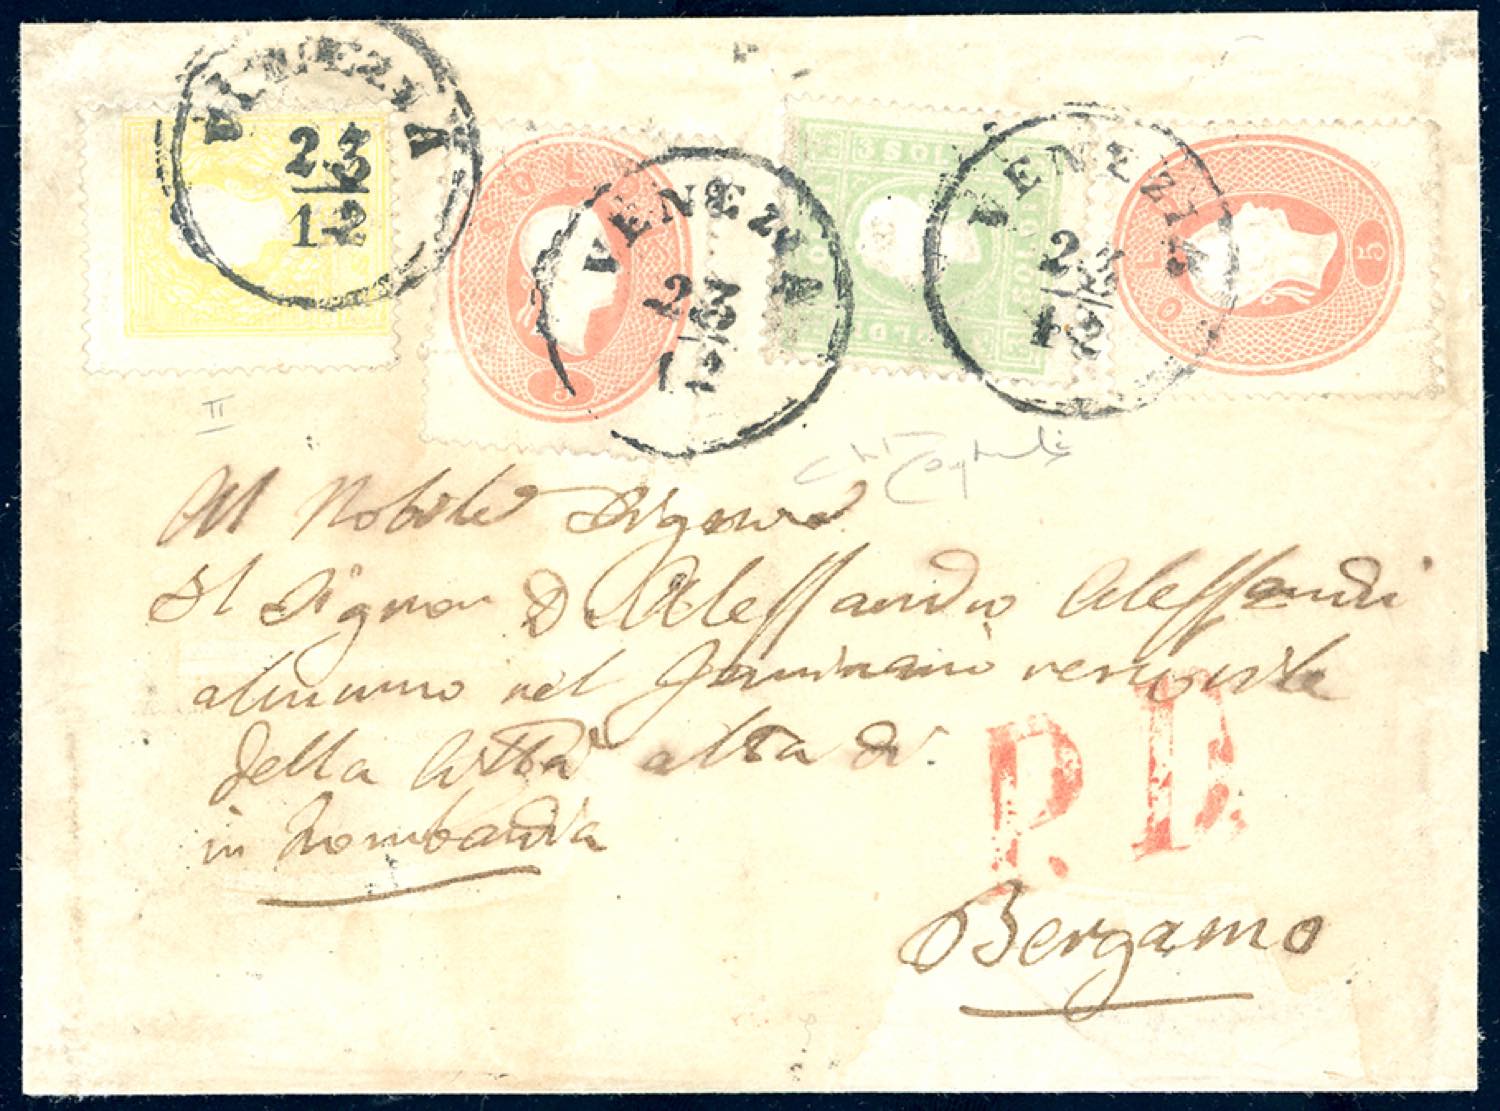 VENEZIA
23
12
SOL 5
VENEZIA
23
12
SOLDI 3 SOLDI
VENEZIA
23
12
SOL 5
II
Al Nobile Signore
Il Signor D. Alessandro Alessandri
alunno nel Seminario vescovile
della Città alta di
in Lombardia
P. D.
Bergamo